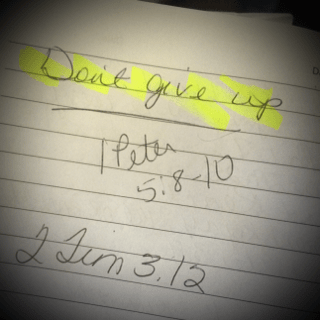 Don't give up
1 Peter
5:8-10
2 Tim 3.12